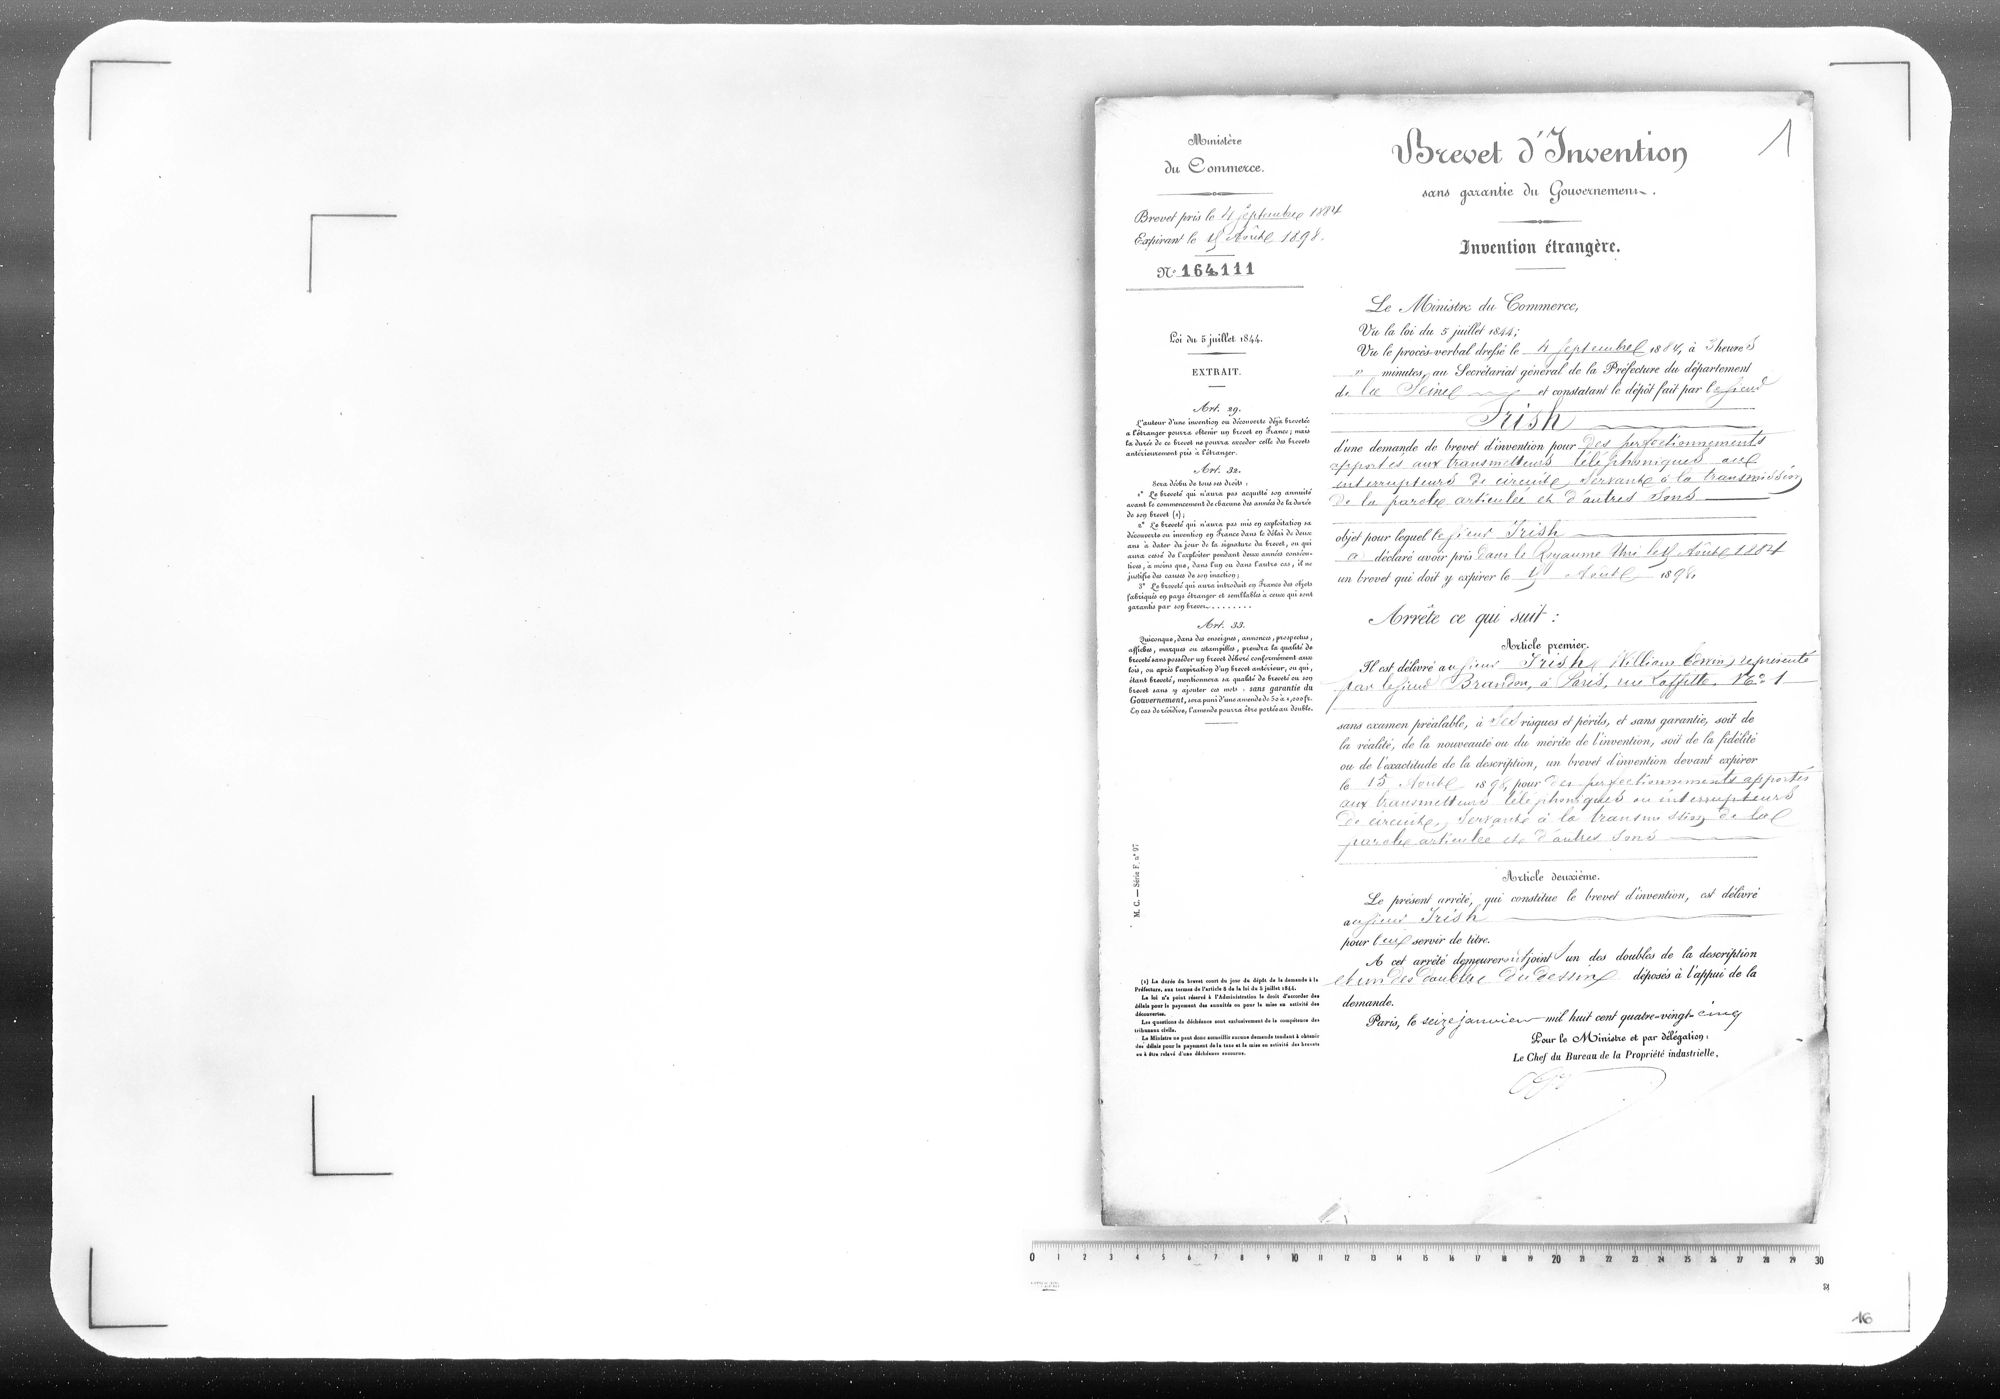 Ministère
du Commerce.
Brevet pris le 4 Septembre 1884
Expirant le 15 Août 1898.
No 164,111
Loi du 5 juillet 1844.
EXTRAIT.
Art. 29.
L'auteur d'une invention ou découverte déjà brevetée
à l'étranger pourra obtenir un brevet en France; mais
la durée de ce brevet ne pourra excéder celle des brevets
antérieurement pris à l'étranger.
Art. 32.
Sera déchu de tous ses droits :
1° Le breveté qui n'aura pas acquitté son annuité
avant le commencement de chacune des années de la durée
de son brevet (1);
2° Le breveté qui n'aura pas mis en exploitation sa
découverte ou invention en France dans le délai de deux
ans à dater du jour de la signature du brevet, ou qui
aura cessé de l'exploiter pendant deux années consécu-
tives, à moins que, dans l'un ou dans l'autre cas, il ne
justifie des causes de son inaction;
3° Le breveté qui aura introduit en France des objets
fabriqués en pays étranger et semblables à ceux qui sont
garantis par son brevet.........
Art. 33.
Quiconque, dans des enseignes, annonces, prospectus,
affiches, marques ou estampilles, prendra la qualité de
breveté sans posséder un brevet délivré conformément aux
lois, ou après l'expiration d'un brevet antérieur, ou qui,
étant breveté, mentionnera sa qualité de breveté ou son
brevet sans y ajouter ces mots : sans garantie du
Gouvernement, sera puni d'une amende de 50 à 1,000 fr.
En cas de récidive, l'amende pourra être portée au double.
M. C. — Série F. n° 97
(1) La durée du brevet court du jour du dépôt de la demande à la
Préfecture, aux termes de l'article 8 de la loi du 5 juillet 1844.
La loi n'a point réservé à l'Administration le droit d'accorder des
délais pour le payement des annuités ou pour la mise en activité des
découvertes.
Les questions de déchéance sont exclusivement de la compétence des
tribunaux civils.
Le Ministre ne peut donc accueillir aucune demande tendant à obtenir
des délais pour le payement de la taxe et la mise en activité des brevets
ou à être relevé d'une déchéance encourue.
1
Brevet d'Invention
sans garantie du Gouvernement.
Invention étrangère.
Le Ministre du Commerce,
Vu la loi du 5 juillet 1844;
Vu le procès-verbal dressé le 4 Septembre 1884, à 3 heures
" minutes, au Secrétariat général de la Préfecture du département
de la Seine et constatant le dépôt fait par le Sieur
Irish
d'une demande de brevet d'invention pour des perfectionnements
apportés aux transmetteurs téléphoniques ou
interrupteurs de circuits, servant à la transmission
de la parole articulée et d'autres sons
objet pour lequel le Sieur Irish
a déclaré avoir pris dans le Royaume Uni le 15 Août 1884
un brevet qui doit y expirer le 15 Août 1898,
Arrête ce qui suit :
Article premier.
Il est délivré au Sieur Irish (William Edwin) représenté
par le Sieur Brandon, à Paris, rue Laffitte, No 1
sans examen préalable, à ses risques et périls, et sans garantie, soit de
la réalité, de la nouveauté ou du mérite de l'invention, soit de la fidélité
ou de l'exactitude de la description, un brevet d'invention devant expirer
le 15 Août 1898, pour des perfectionnements apportés
aux transmetteurs téléphoniques ou interrupteurs
de circuits, servant à la transmission de la
parole articulée et d'autres sons
Article deuxième.
Le présent arrêté, qui constitue le brevet d'invention, est délivré
au Sieur Irish
pour lui servir de titre.
A cet arrêté demeureront joints un des doubles de la description
et un des doubles du dessin déposés à l'appui de la
demande.
Paris, le seize janvier mil huit cent quatre-vingt-cinq
Pour le Ministre et par délégation :
Le Chef du Bureau de la Propriété industrielle,
0 1 2 3 4 5 6 7 8 9 10 11 12 13 14 15 16 17 18 19 20 21 22 23 24 25 26 27 28 29 30
16